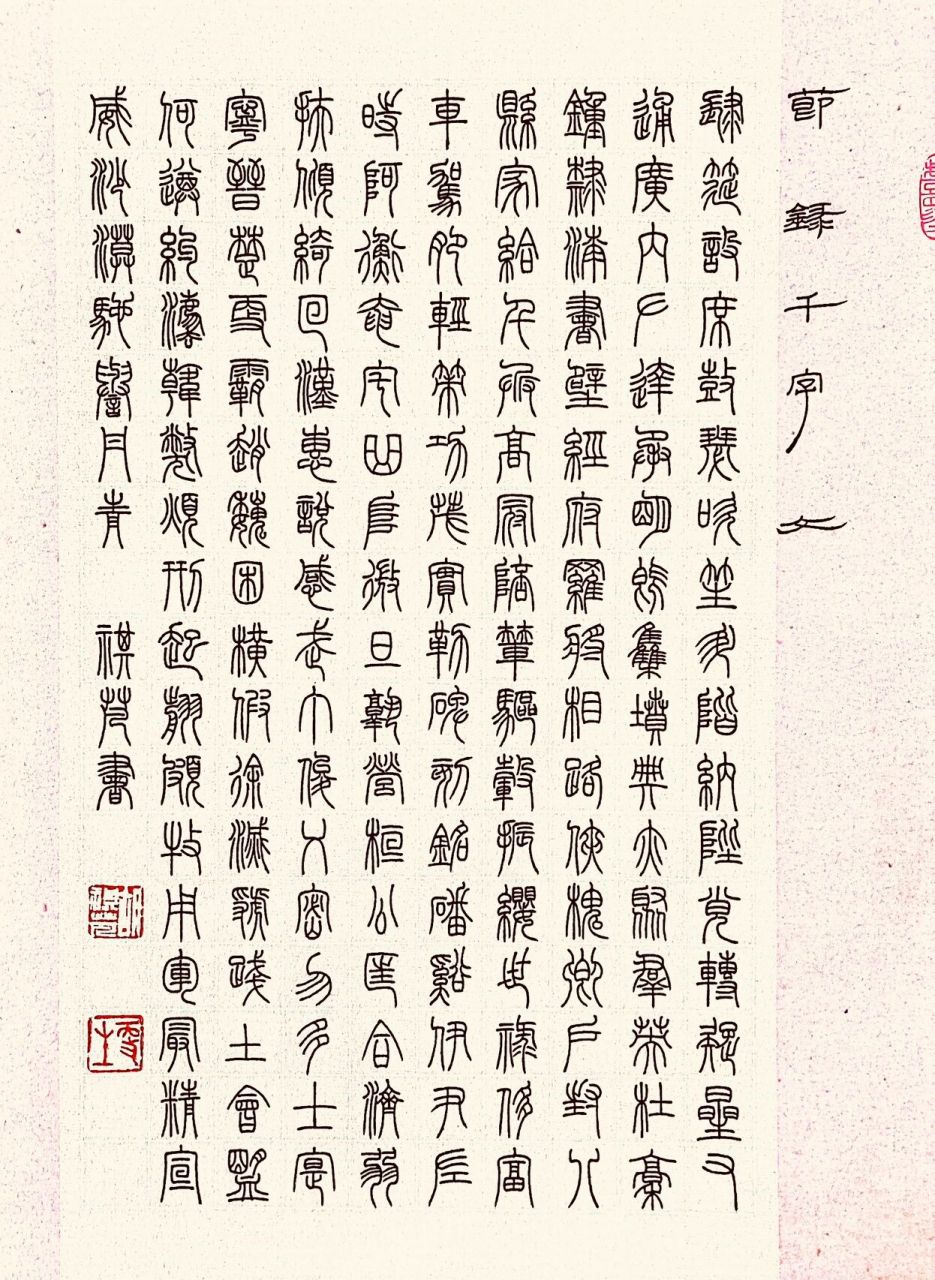 節錄千字文
肆筵設席鼓瑟吹笙升階納陛弁轉疑星右
通廣內左達承明既集墳典亦聚羣英杜稾
鍾隸漆書壁經府羅將相路俠槐卿戶封八
縣家給千兵高冠陪輦驅轂振纓世祿侈富
車駕肥輕策功茂實勒碑刻銘磻谿伊尹佐
時阿衡奄宅曲阜微旦孰營桓公匡合濟弱
扶傾綺回漢惠說感武丁俊乂密勿多士寔
寧晉楚更霸趙魏困橫假途滅虢踐土會盟
何遵約法韓弊煩刑起翦頗牧用軍最精宣
威沙漠馳譽丹青 祺書